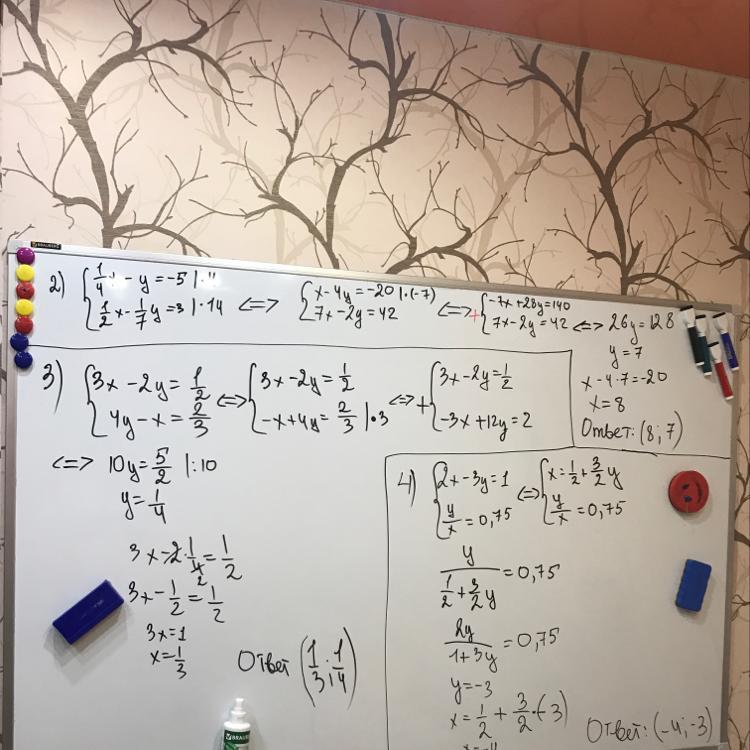 BRAUBERG
2) { 1/4 x - y = -5 | ·4
1/2 x - 1/7 y = 3 | ·14
<=> { x - 4y = -20 | ·(-7)
7x - 2y = 42
<=> + { -7x + 28y = 140
7x - 2y = 42
<=> 26y = 128
y = 7
x - 4·7 = -20
x = 8
Ответ: (8; 7)
3) { 3x - 2y = 1/2
4y - x = 2/3
<=> { 3x - 2y = 1/2
-x + 4y = 2/3 | ·3
<=> + { 3x - 2y = 1/2
-3x + 12y = 2
<=> 10y = 5/2 | :10
y = 1/4
3x - 2·1/4 = 1/2
2
3x - 1/2 = 1/2
3x = 1
x = 1/3
Ответ (1/3; 1/4)
4) { 2x - 3y = 1
y/x = 0,75
<=> { x = 1/2 + 3/2 y
y/x = 0,75
y / (1/2 + 3/2 y) = 0,75
2y / (1 + 3y) = 0,75
y = -3
x = 1/2 + 3/2·(-3)
x = -4
Ответ: (-4; -3)
BRAUBERG